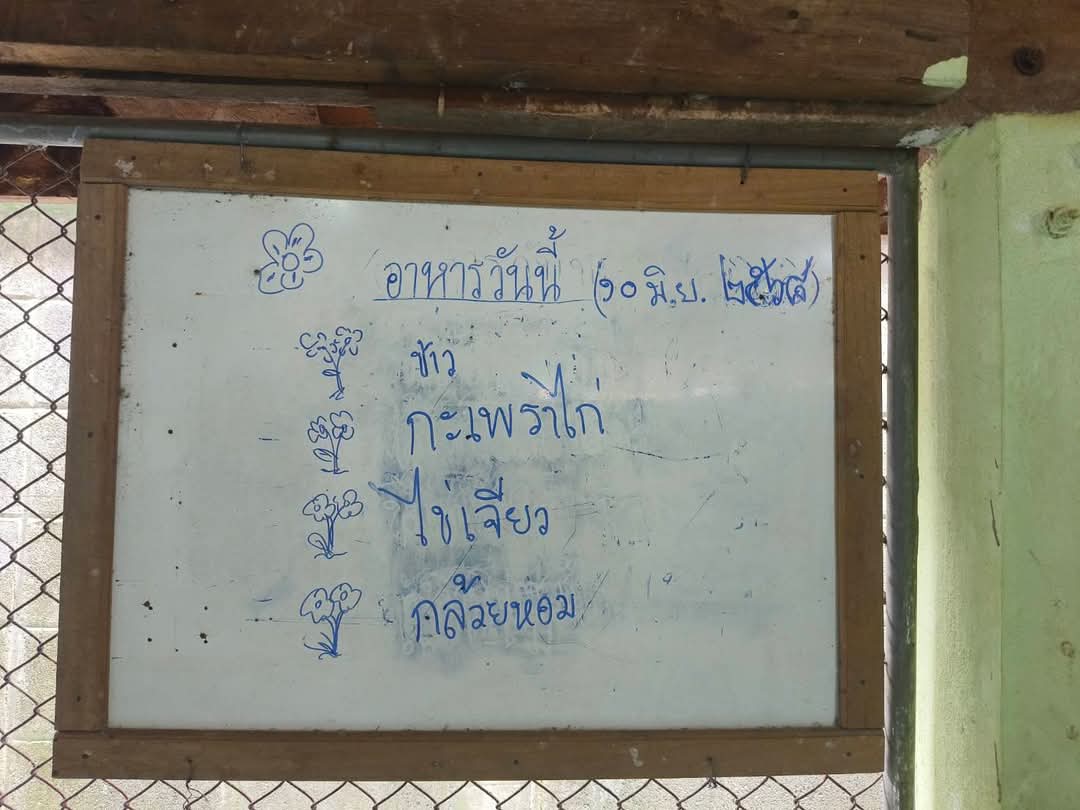 อาหารวันนี้ (๑๐ มิ.ย. ๒๕๖๘)
ข้าว
กะเพราไก่
ไข่เจียว
กล้วยหอม